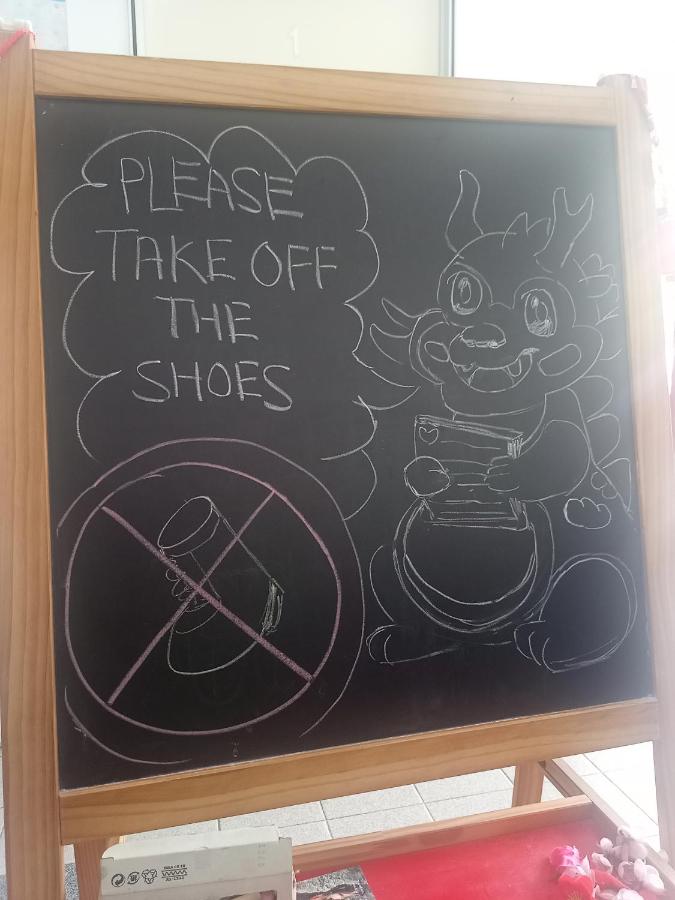 PLEASE
TAKE OFF
THE
SHOES